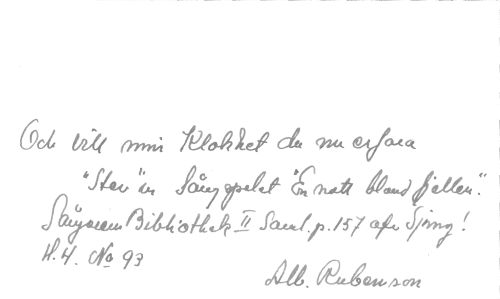 Och vill min Klokhet du nu erfara
"Stev" ur Sångspelet "En natt bland fjellen".
Sångarens Bibliothek II Saml. p. 157 och Sjung!
H. H. No 93
Alb. Rubenson